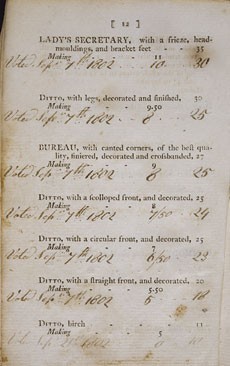 [ 12 ]
LADY'S SECRETARY, with a frieze, head-
mouldings, and bracket feet - - 35
Making - - 11
Voted Sep. 7th 1802 - 10 30
DITTO, with legs, decorated and finished, 30
Making - - 9.50
Voted Sep. 7th 1802 - 8 25
BUREAU, with canted corners, of the best qual-
ity, finiered, decorated and crossbanded, 27
Making - - 9
Voted Sep. 7th 1802 8 25
DITTO, with a scolloped front, and decorated, 25
Making - - 8
Voted Sep. 7th 1802 7/50 24
DITTO, with a circular front, and decorated, 25
Making - - 7
Voted Sep. 7th 1802 6/50 22
DITTO, with a straight front, and decorated, 20
Making - - 5.50
Voted Sep. 7th 1802 5 18
DITTO, birch - - - 11
Making - - 5